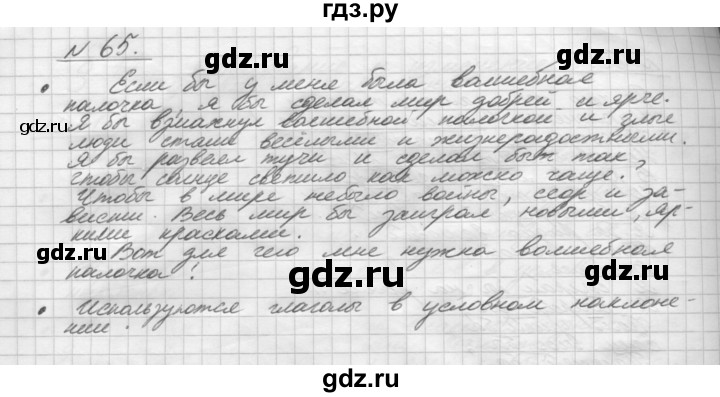 гдз.ру
N 65.
gdz.ru gdz.ru
• Если бы у меня была волшебная
палочка, я бы сделал мир добрей и ярче.
gdz.ru gdz.ru
Я бы взмахнул волшебной палочкой и злые
люди стали весёлыми и жизнерадостными.
gdz.ru
Я бы развеял тучи и сделал быт так,
чтобы солнце светило как можно чаще.
gdz.ru gdz.ru
Чтобы в мире небыло войны, ссор и за-
висти. Весь мир бы заиграл новыми, яр-
кими красками.
gdz.ru gdz.ru
Вот для чего мне нужна волшебная
палочка!
gdz.ru
• Используются глаголы в условном наклоне-
нии.
gdz.ru gdz.ru
gdz.ru